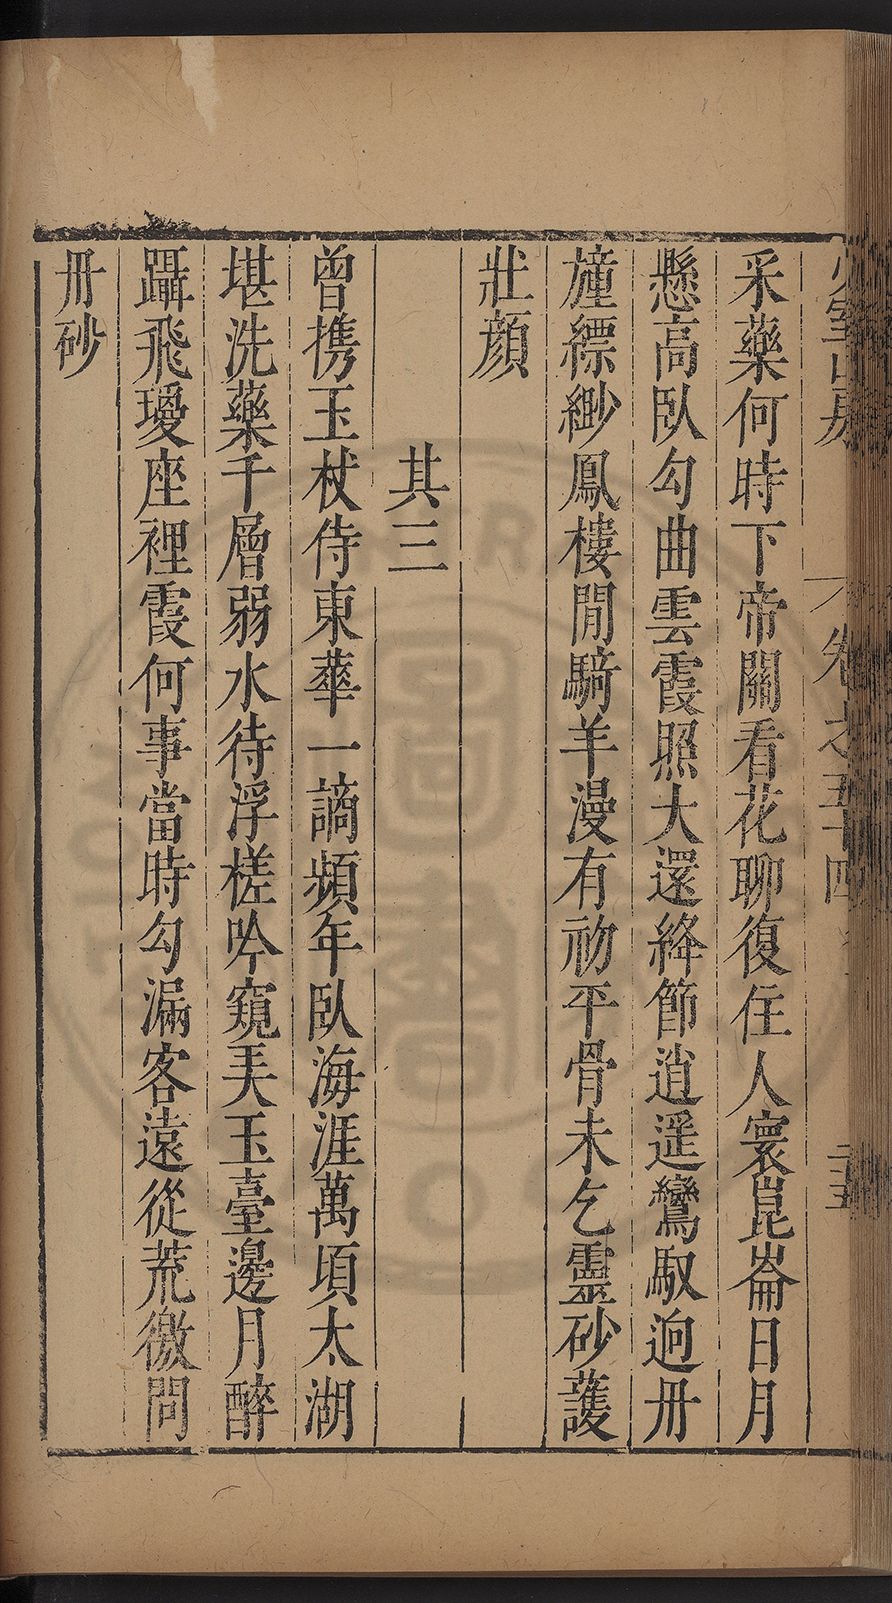 少室山房 卷之五十四 二十五
采藥何時下帝關看花聊復住人寰崑崙日月
懸高臥勾曲雲霞照大還絳節逍遥鸞馭逈丹
旌縹緲鳳樓閒騎羊漫有初平骨未乞靈砂護
壯顔
其三
曾携玉杖侍東華一謫頻年臥海涯萬頃太湖
堪洗藥千層弱水待浮槎吟窺天玉臺邊月醉
躡飛璦座裡霞何事當時勾漏客遠從荒徼問
丹砂